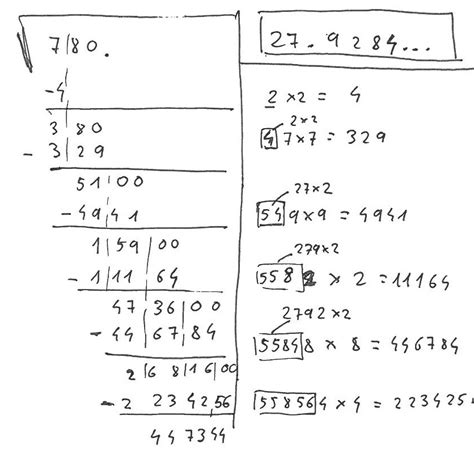 √7|80.
-4
3|80
- 3|29
51|00
- 49|41
1|59|00
- 1|11|64
47|36|00
- 44|67|84
2|68|16|00
- 2 23 42,56
447344
27.9284...
2 × 2 = 4
2×2
47×7 = 329
27×2
549×9 = 4941
279×2
5582 × 2 = 11164
2792×2
55848 × 8 = 446784
558564 × 4 = 223425